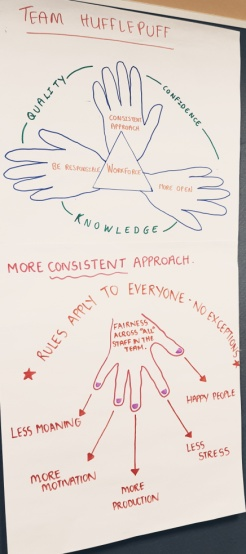 TEAM HUFFLEPUFF
QUALITY
CONFIDENCE
CONSISTENT
APPROACH
BE RESPONSIBLE
WORKFORCE
MORE OPEN
KNOWLEDGE
MORE CONSISTENT APPROACH.
RULES APPLY TO EVERYONE · NO EXCEPTIONS
FAIRNESS
ACROSS "ALL"
STAFF IN THE
TEAM.
LESS MOANING
HAPPY PEOPLE
MORE
MOTIVATION
LESS
STRESS
MORE
PRODUCTION